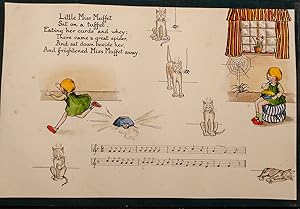 Little Miss Muffet
Sat on a tuffet,
Eating her curds and whey;
There came a great spider,
And sat down beside her,
And frightened Miss Muffet away.